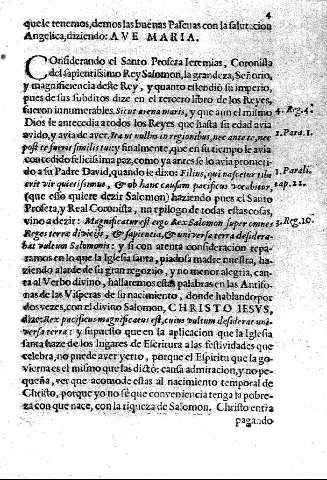 4
que le tenemos, demos las buenas Pascuas con la salutacion
Angelica, diziendo: AVE MARIA.
Considerando el Santo Profeta Ieremias, Coronista
del sapientissimo Rey Salomon, la grandeza, Señorio,
y magnificiencia deste Rey, y quanto estendiò su imperio,
pues de sus subditos dize en el tercero libro de los Reyes,
fueron innumerables. Sicut arena maris, y que aun el mismo
Dios le antecedia a todos los Reyes que hasta su edad avia
avido, y avia de aver. Ita ut nullus in regionibus, nec ante te, nec
post te fuerit similis tui: y finalmente, que en su tiempo le avia
concedido felicissima paz, como ya antes se lo avia prometi-
do a su Padre David, quando le dixo: Filius, qui nascetur tibi
erit vir quietissimus, & ob hanc causam pacificus vocabitur,
(que esso quiere dezir Salomon) haziendo pues el Santo
Profeta, y Real Coronista, un epilogo de todas estas cosas,
vino a dezir: Magnificatus est ergo Rex Salomon super omnes
Reges terræ divitijs, & sapientia, & universa terra desidera-
bat vultum Salomonis: y si con atenta consideracion repa-
ramos en lo que la Iglesia santa, piadosa madre nuestra, ha-
ziendo alarde de su gran regozijo, y no menor alegria, can-
ta al Verbo divino, hallaremos estas palabras en las Antifo-
nas de las Visperas de su nacimiento, donde hablando por
dos vezes, con el divino Salomon, CHRISTO IESVS,
dize: Rex pacificus magnificatus est, cuius vultum desiderat uni-
versa terra: y supuesto que en la aplicacion que la Iglesia
santa haze de los lugares de Escritura a las festividades que
celebra, no puede aver yerro, porque el Espiritu que la go-
vierna es el mismo que las dictò: causa admiracion, y no pe-
queña, ver que acomode estas al nacimiento temporal de
Christo, porque yo no se que conveniencia tenga la pobre-
za con que nace, con la riqueza de Salomon. Christo entra
pagando
4. Reg. 4.
2. Para. 1.
1. Parali.
cap. 22.
3. Reg. 10.